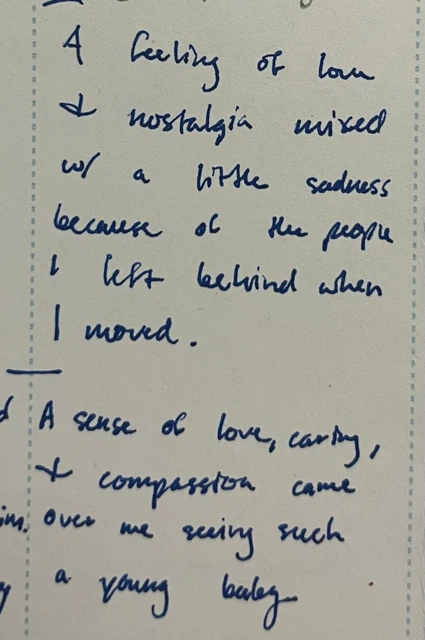 A feeling of love
+ nostalgia mixed
w/ a little sadness
because of the people
I left behind when
I moved.
A sense of love, caring,
+ compassion came
over me seeing such
a young baby